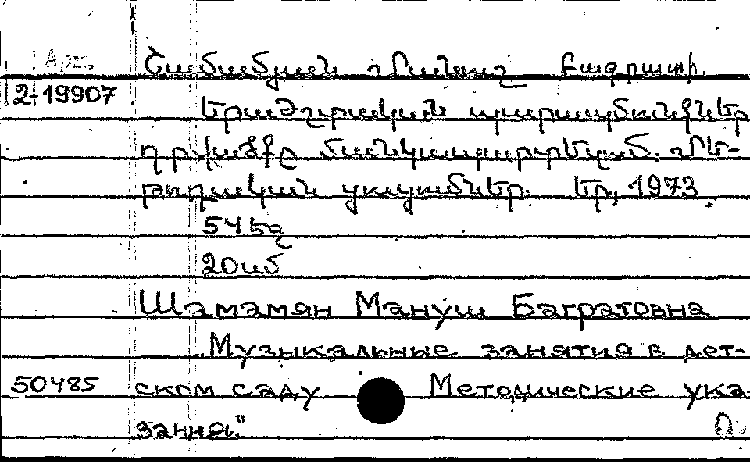 Շամամյան Մանուշ Բագրատի
2-19907
Երաժշտական պարապմունքներ
դրվածքը մանկապարտեզում. Մե-
թոդական ցուցումներ. Եր., 1973
54 էջ
20 սմ
Шамамян Мануш Багратовна
Музыкальные занятия в дет-
50485 ском саду Методические ука
зания"